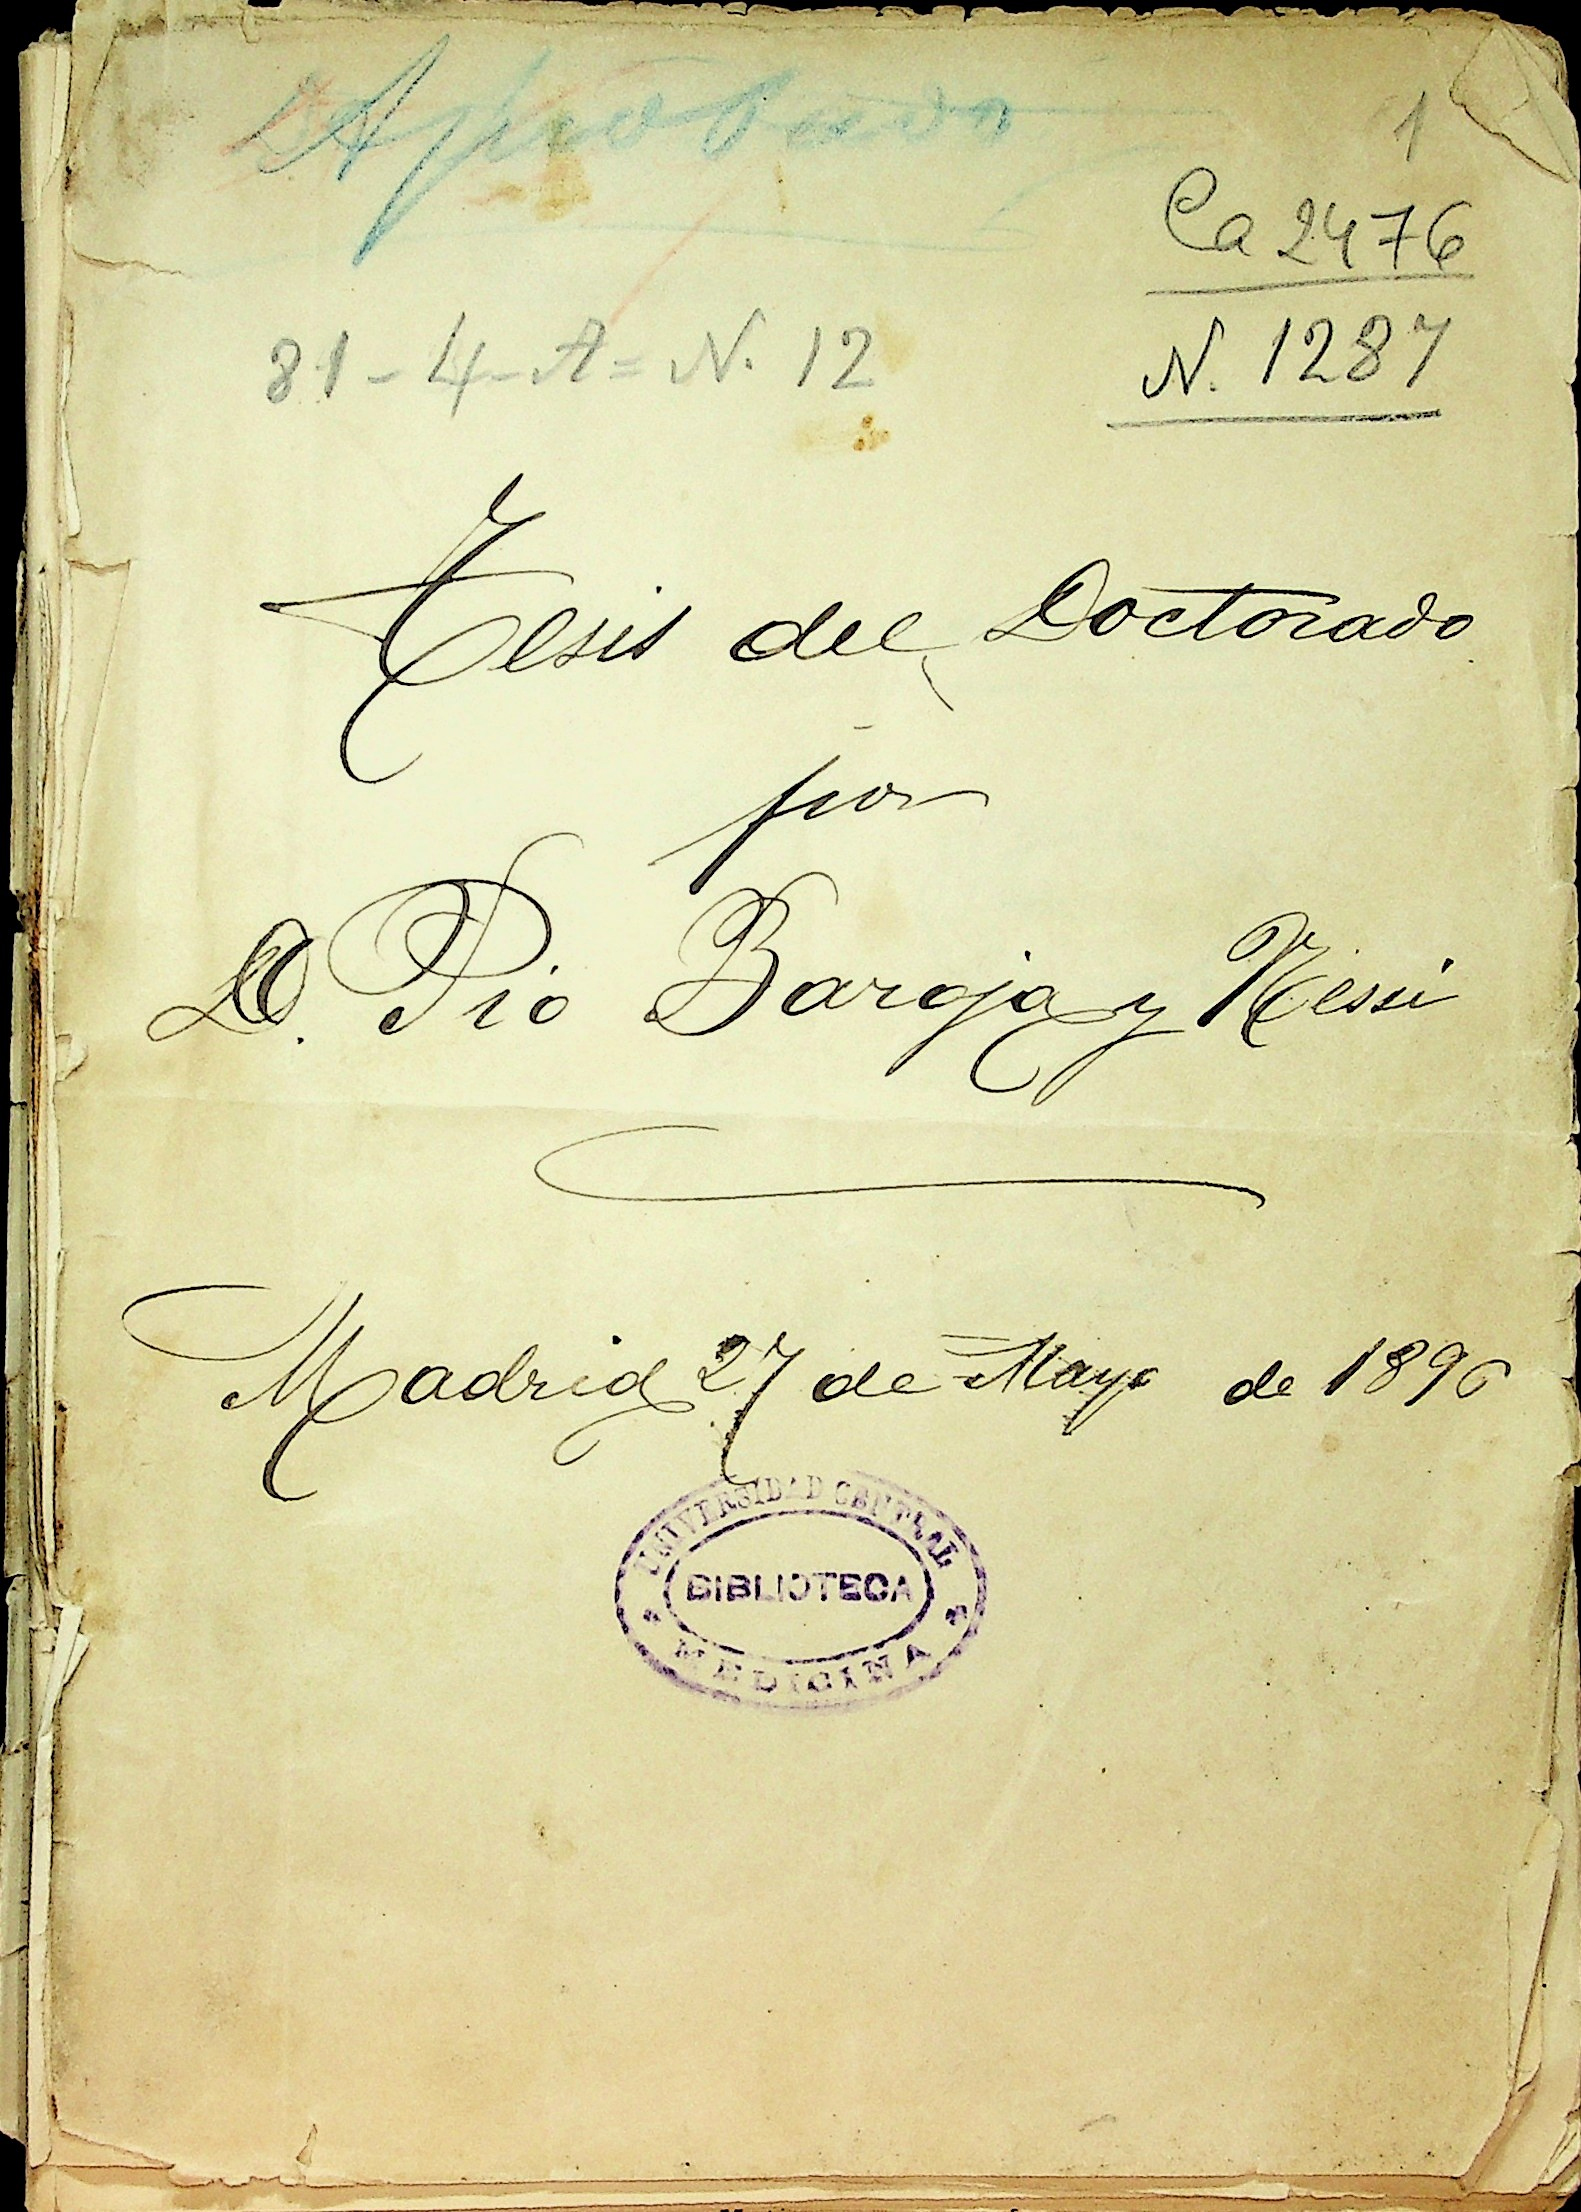 Aprobado
1
Ca 2476
N. 1287
81-4-A=N. 12
Tesis del Doctorado
por
D. Pio Baroja y Nessi
Madrid 27 de Mayo de 1896
UNIVERSIDAD CENTRAL
BIBLIOTECA
MEDICINA